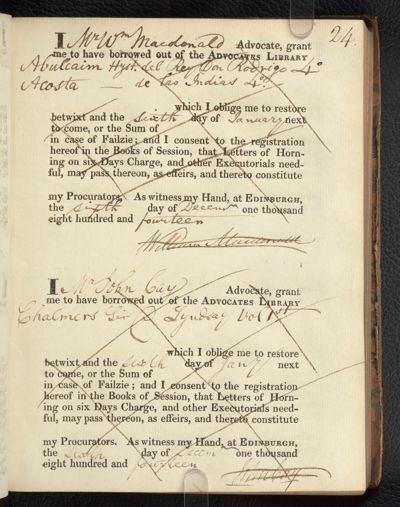 24.
I Mr Wm Macdonald Advocate, grant
me to have borrowed out of the ADVOCATES LIBRARY
Abulcaim Hyst. del Rey Don Rodrigo 4o
Acosta — de las Indias 4o.
which I oblige me to restore
betwixt and the sixth day of January next
to come, or the Sum of
in case of Failzie; and I consent to the registration
hereof in the Books of Session, that Letters of Horn-
ing on six Days Charge, and other Executorials need-
ful, may pass thereon, as effeirs, and thereto constitute
my Procurators. As witness my Hand, at EDINBURGH,
the sixth day of Decemr one thousand
eight hundred and fourteen
William Macdonald
I Mr John Cay Advocate, grant
me to have borrowed out of the ADVOCATES LIBRARY
Chalmers Sir D Lyndsay Vol 1st
which I oblige me to restore
betwixt and the sixth day of Jany next
to come, or the Sum of
in case of Failzie; and I consent to the registration
hereof in the Books of Session, that Letters of Horn-
ing on six Days Charge, and other Executorials need-
ful, may pass thereon, as effeirs, and thereto constitute
my Procurators. As witness my Hand, at EDINBURGH,
the sixth day of Decem one thousand
eight hundred and fourteen
John Cay